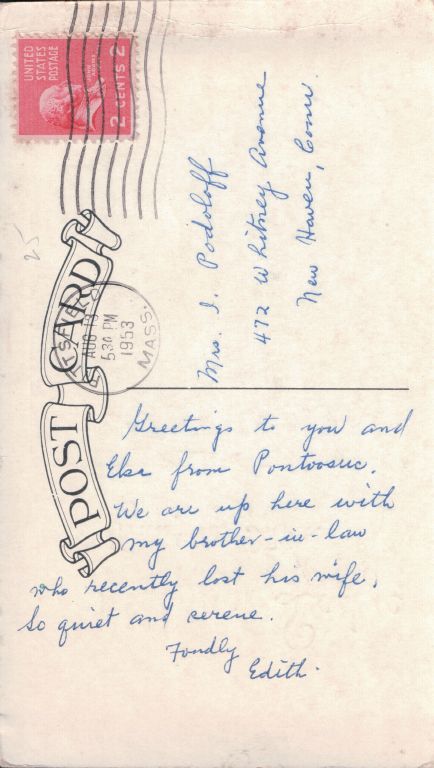 UNITED
STATES
POSTAGE
JOHN ADAMS
2 CENTS 2
25
POST CARD
AUG 13
530 PM
1953
MASS.
Mrs. I. Podoloff
472 Whitney Avenue
New Haven, Conn.
Greetings to you and
Elsa from Pontoosuc.
We are up here with
my brother-in-law
who recently lost his wife.
So quiet and serene.
Fondly
Edith.